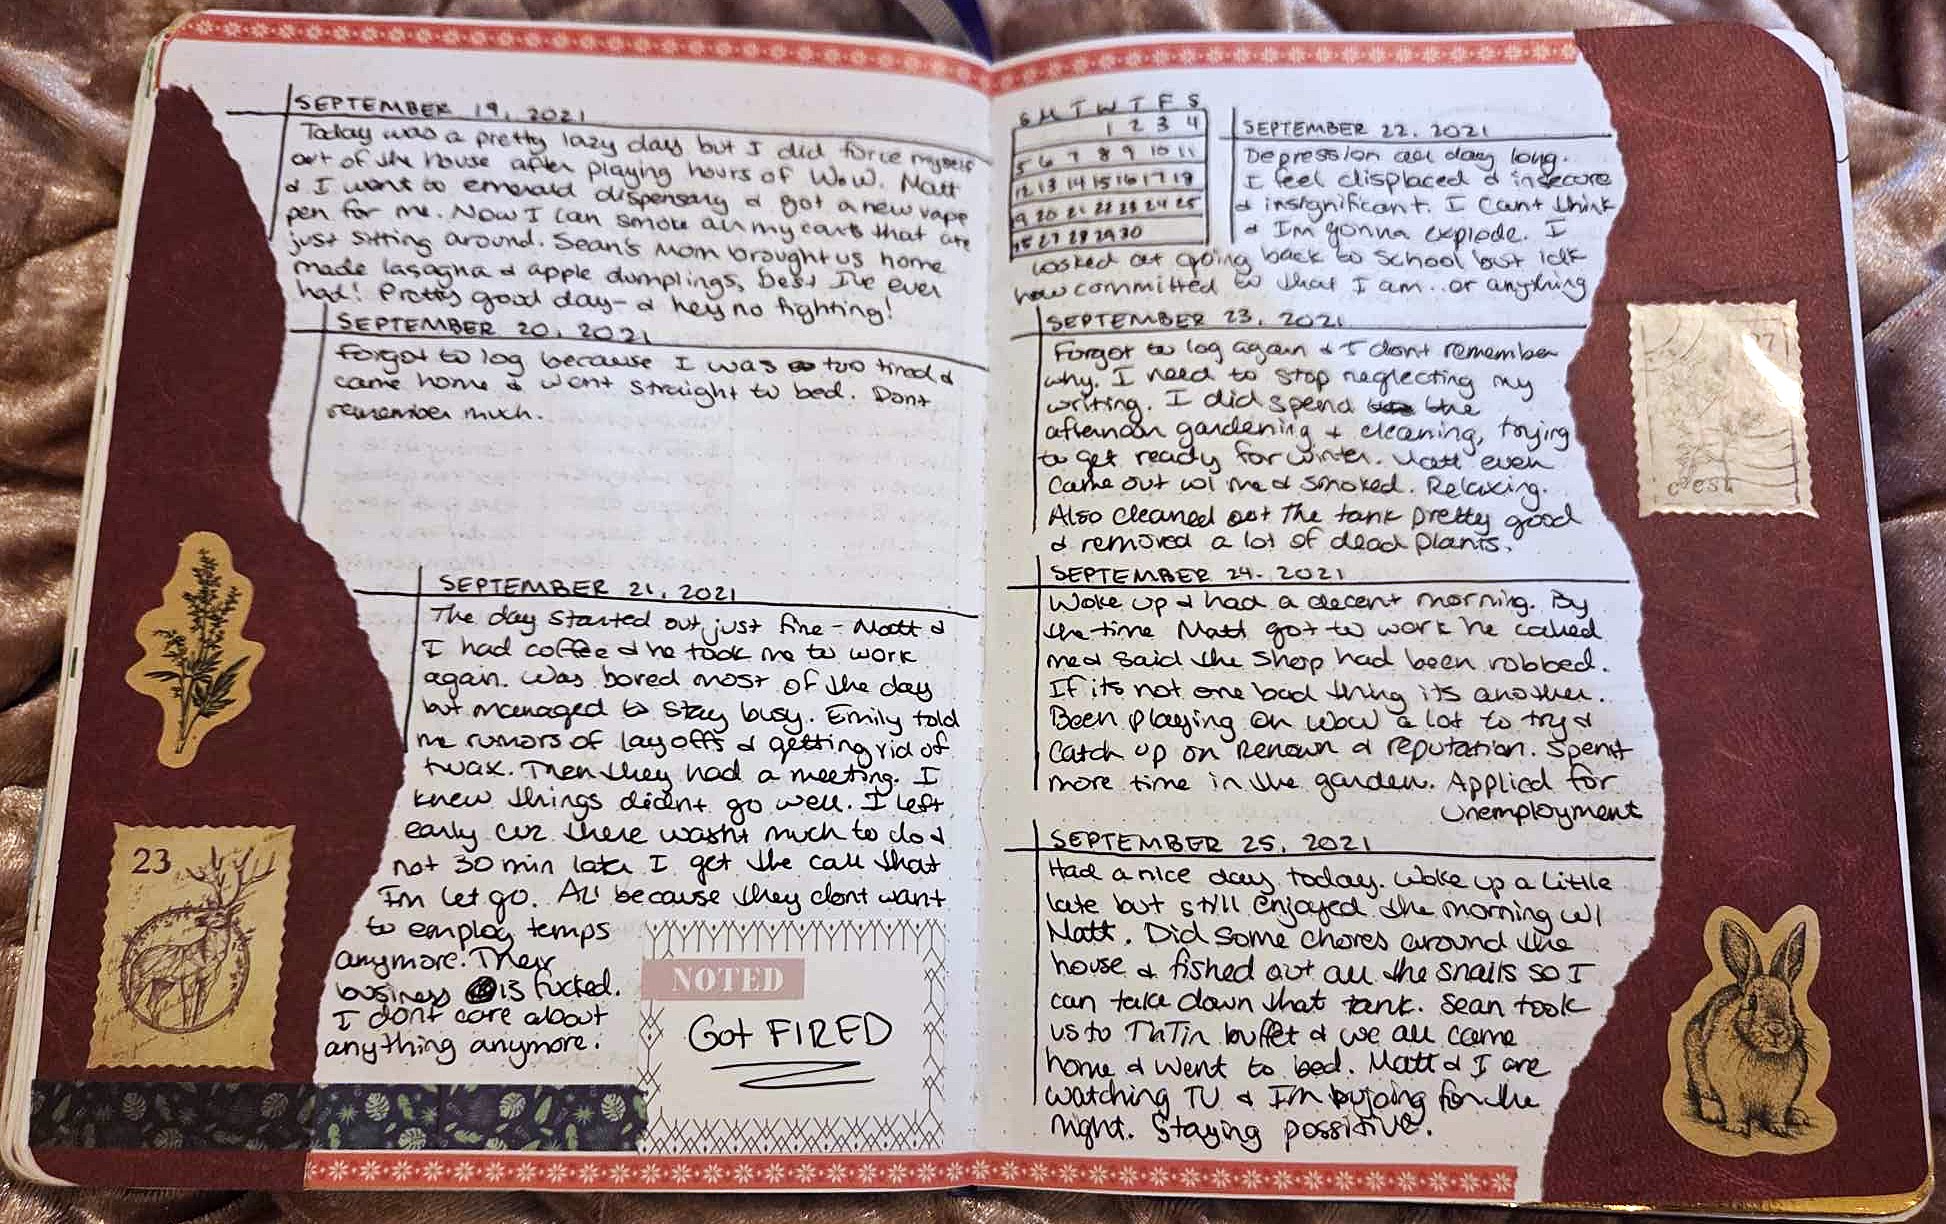 SEPTEMBER 19, 2021
Today was a pretty lazy day but I did force myself
out of the house after playing hours of WoW. Matt
& I went to emerald dispensary & got a new vape
pen for me. Now I can smoke all my carts that are
just sitting around. Sean's Mom brought us home
made lasagna & apple dumplings, best I've ever
had! Pretty good day - & hey no fighting!
SEPTEMBER 20, 2021
Forgot to log because I was too tired &
came home & went straight to bed. Dont
remember much.
SEPTEMBER 21, 2021
The day started out just fine - Matt &
I had coffee & he took me to work
again. Was bored most of the day
but managed to stay busy. Emily told
me rumors of layoffs & getting rid of
twax. Then they had a meeting. I
knew things didnt go well. I left
early cuz there wasnt much to do &
not 30 min later I get the call that
Im let go. All because they dont want
to employ temps
anymore. Their
business is fucked.
I dont care about
anything anymore.
NOTED
Got FIRED
23
S M T W T F S
1 2 3 4
5 6 7 8 9 10 11
12 13 14 15 16 17 18
19 20 21 22 23 24 25
27 28 29 30
SEPTEMBER 22, 2021
Depression all day long.
I feel displaced & insecure
& insignificant. I cant think
& Im gonna explode. I
looked at going back to school but idk
how committed to that I am.. or anything
SEPTEMBER 23, 2021
Forgot to log again & I dont remember
why. I need to stop neglecting my
writing. I did spend the
afternoon gardening & cleaning, trying
to get ready for winter. Matt even
came out w/ me & smoked. Relaxing.
Also cleaned out the tank pretty good
& removed a lot of dead plants.
SEPTEMBER 24. 2021
Woke up & had a decent morning. By
the time Matt got to work he called
me & said the shop had been robbed.
If its not one bad thing its another.
Been playing on WoW a lot to try &
catch up on Renown & reputation. Spent
more time in the garden. Applied for
unemployment
SEPTEMBER 25, 2021
Had a nice day today. Woke up a little
late but still enjoyed the morning w/
Matt. Did some chores around the
house & fished out all the snails so I
can take down that tank. Sean took
us to TnTin buffet & we all came
home & went to bed. Matt & I are
watching TV & Im bujoing for the
night. Staying possitive.